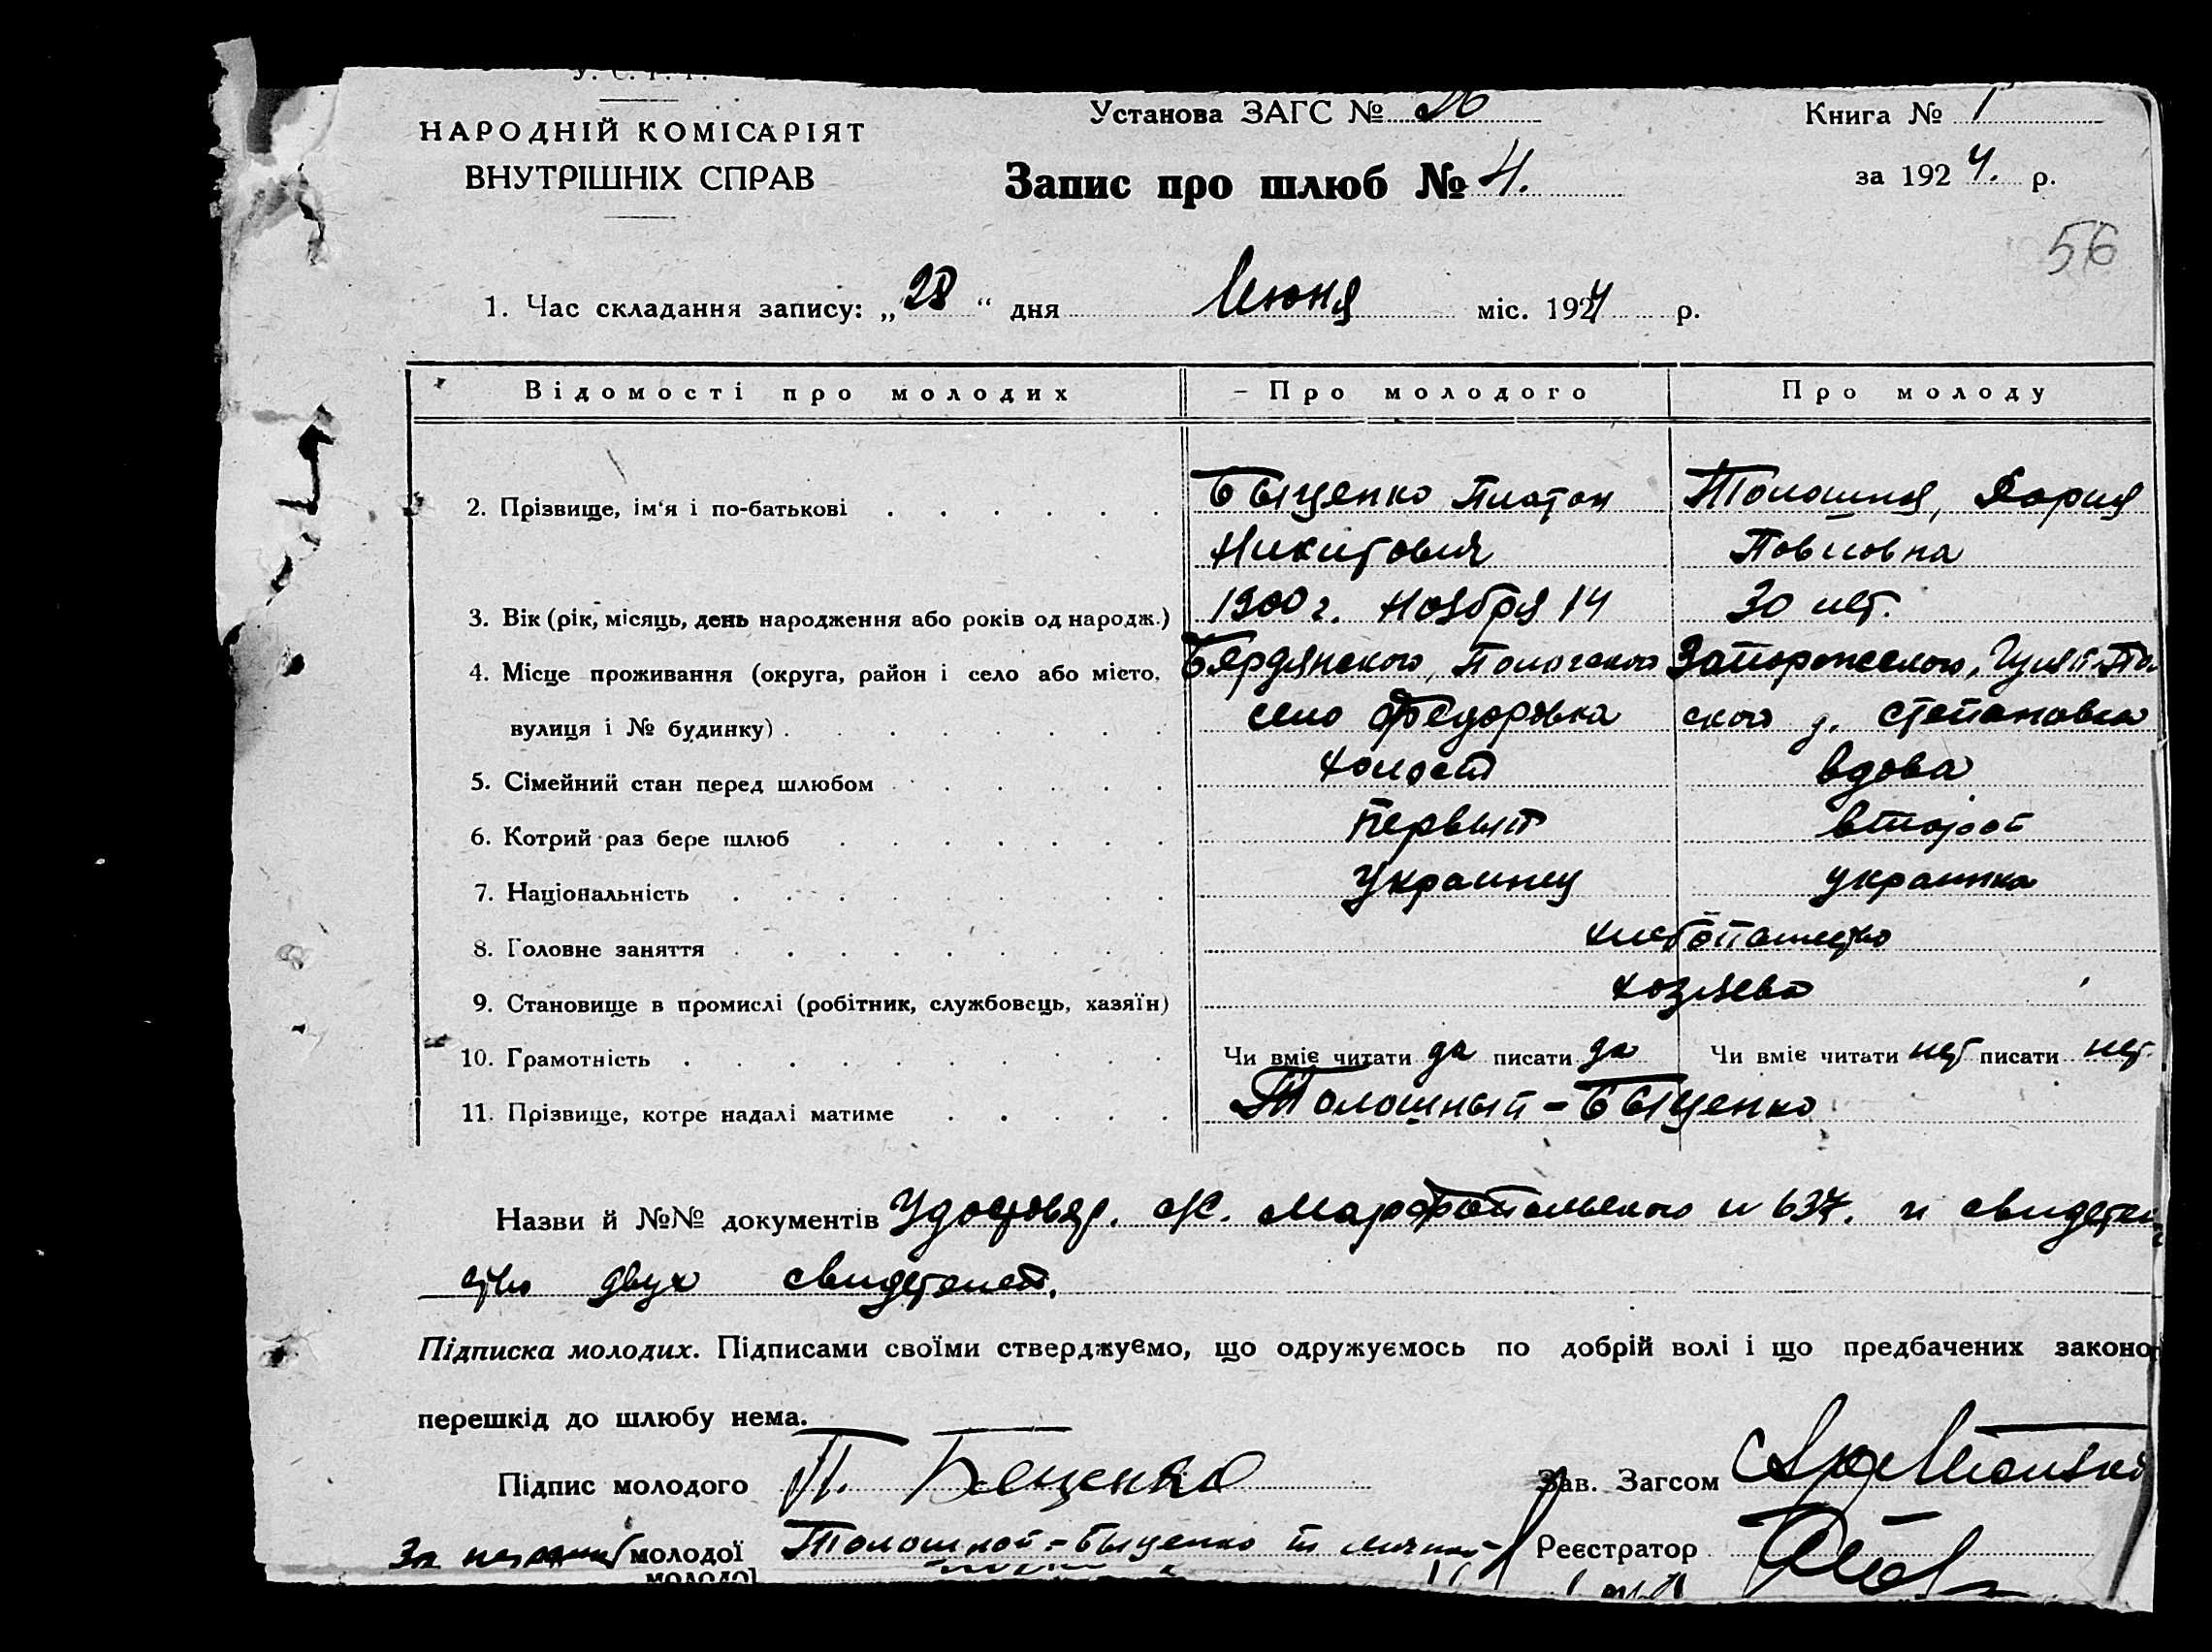 НАРОДНІЙ КОМІСАРІЯТ
ВНУТРІШНІХ СПРАВ
Установа ЗАГС №
Книга № 1
Запис про шлюб № 4.
за 1924. р.
56
1. Час складання запису: „28“ дня Июня міс. 1924 р.
Відомості про молодих
Про молодого
Про молоду
2. Прізвище, ім'я і по-батькові
Быценко Платон
Никитович
Толошная, Дария
Павловна
3. Вік (рік, місяць, день народження або років од народж.)
1900 г. Ноября 14
30 лет.
4. Місце проживання (округа, район і село або місто,
вулиця і № будинку)
Бердянского, Пологского
село Федоровка
Запорожского, Гуляй-По
ского д. Степановка
5. Сімейний стан перед шлюбом
холост
вдова
6. Котрий раз бере шлюб
первый
второй
7. Національність
Украинец
украинка
8. Головне заняття
хлебопашество
9. Становище в промислі (робітник, службовець, хазяїн)
хозяева
10. Грамотність
Чи вміє читати да писати да
Чи вміє читати нет писати нет.
11. Прізвище, котре надалі матиме
Толошный-Быценко
Назви й №№ документів Удостовер. с/с. Марфопольского № 637. и свидетель
ство двух свидетелей.
Підписка молодих. Підписами своїми стверджуємо, що одружуємось по добрій волі і що предбачених законо
перешкід до шлюбу нема.
Підпис молодого П. Беценко
Зав. Загсом
За неграмот молодої Толошной-Быценко
Реєстратор